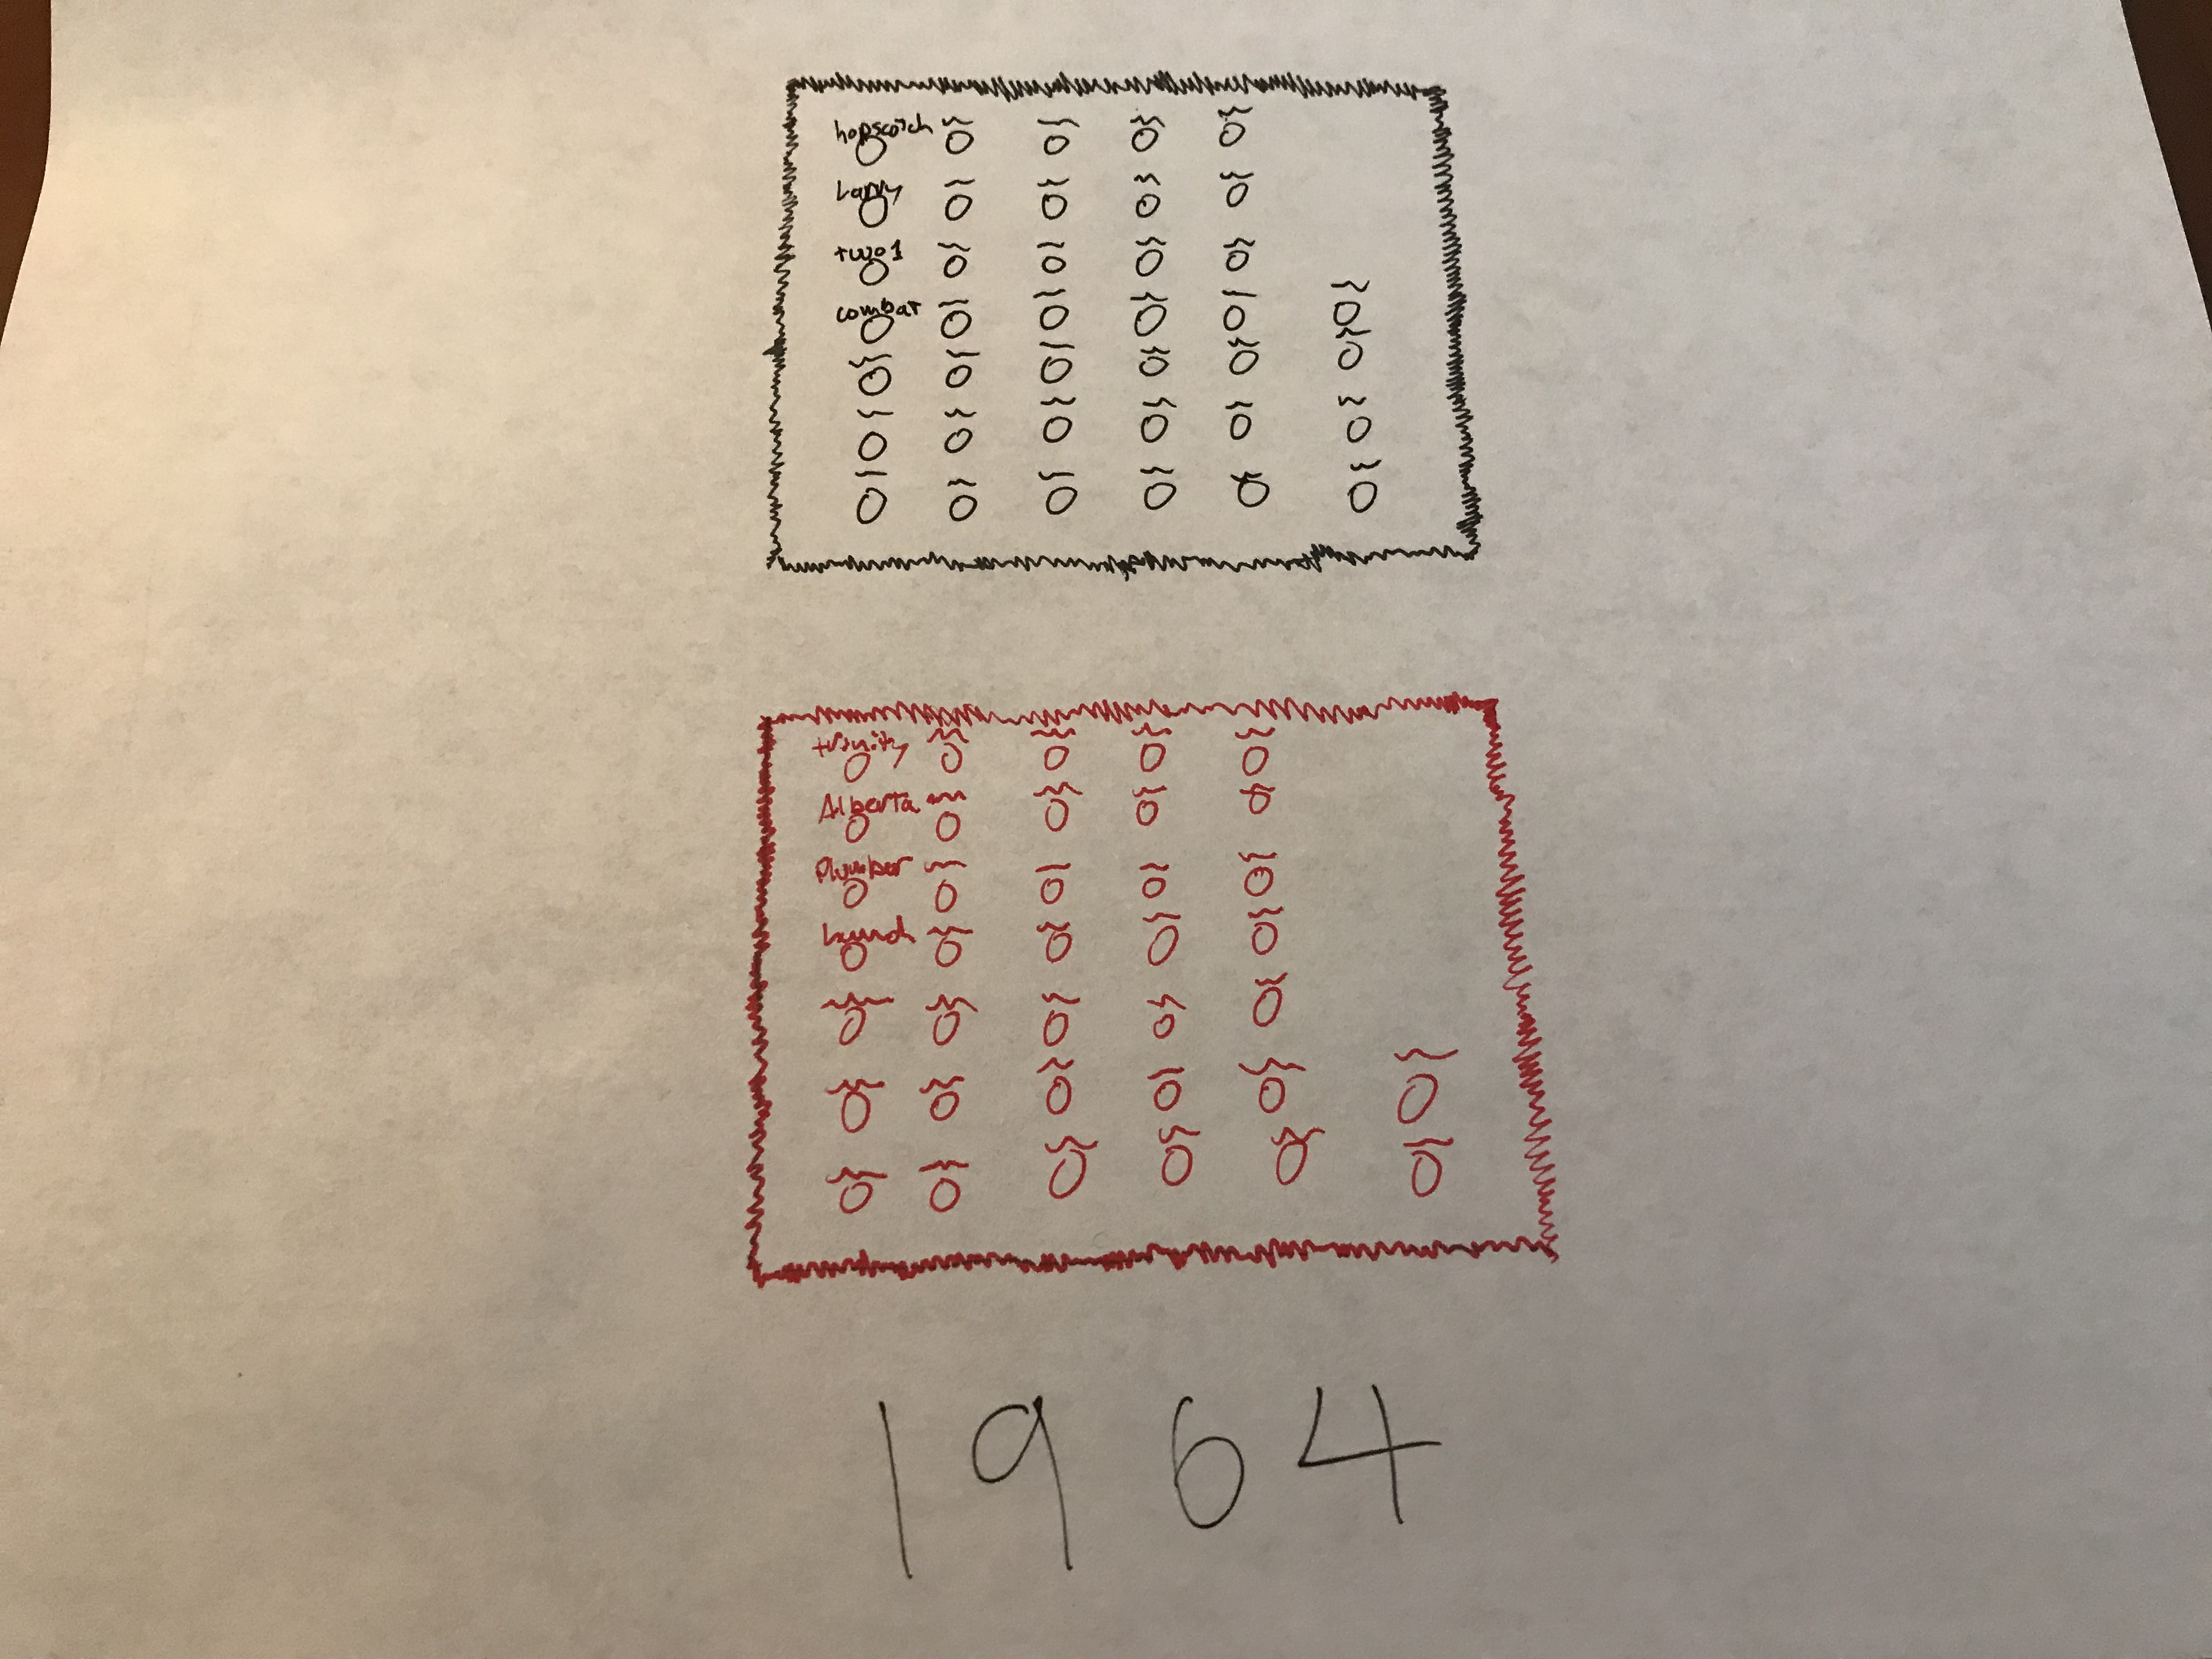 hopscotch
Larry
two1
combat
trinity
Alberta
Plumber
Launch
1964